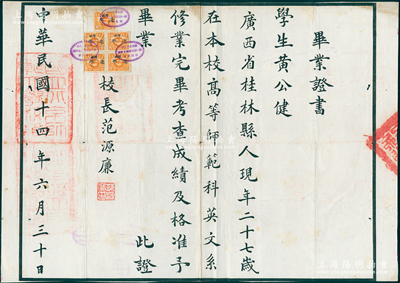 畢業證書
學生黃公健
廣西省桂林縣人現年二十七歲
在本校高等師範科英文系
修業完畢考查成績及格准予
畢業
此證
校長范源廉
中華民國十四年六月三十日